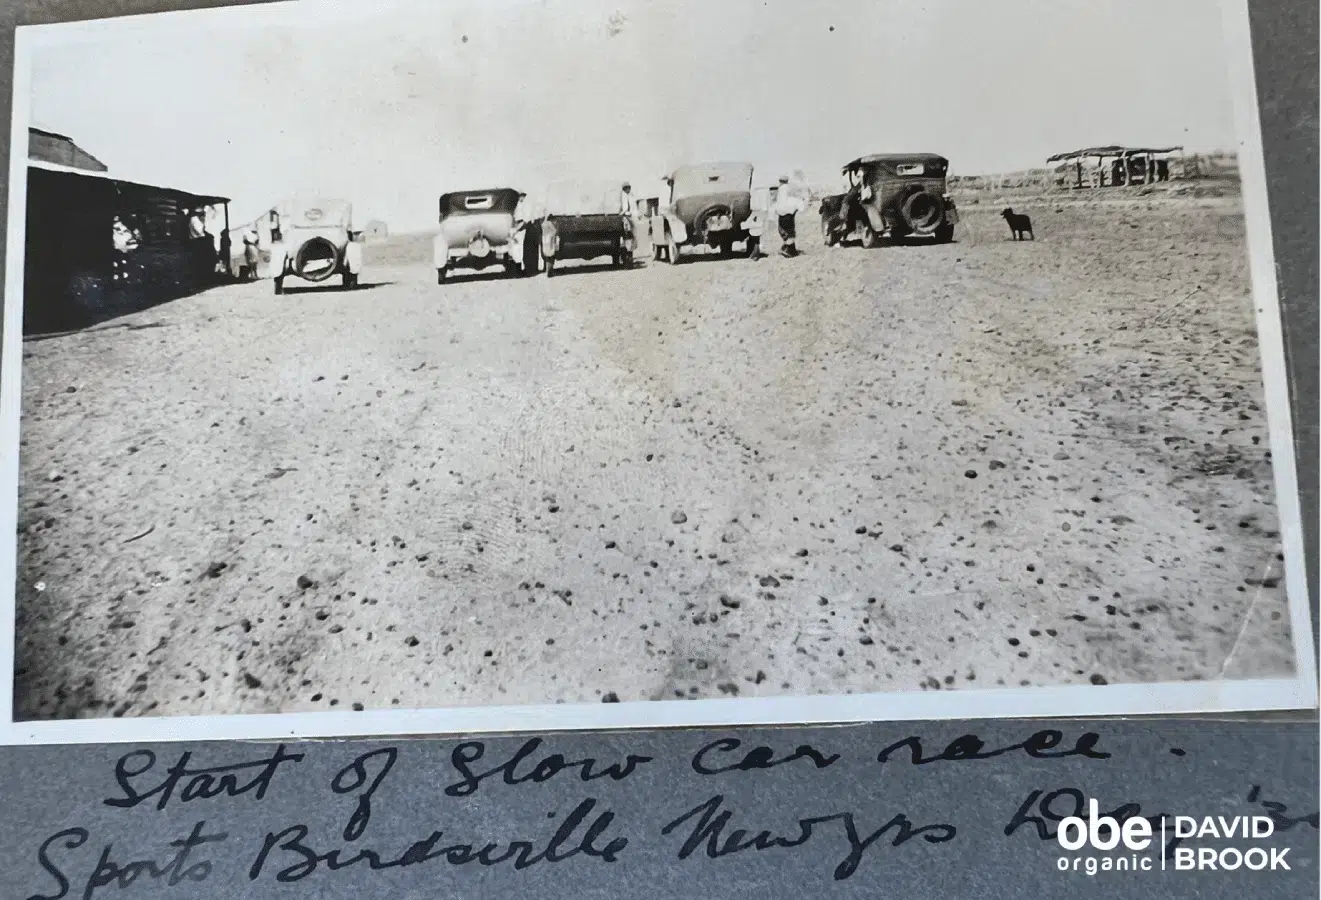 Start of Slow car race.
Sports Birdsville New Yrs Day
obe
organic
DAVID
BROOK